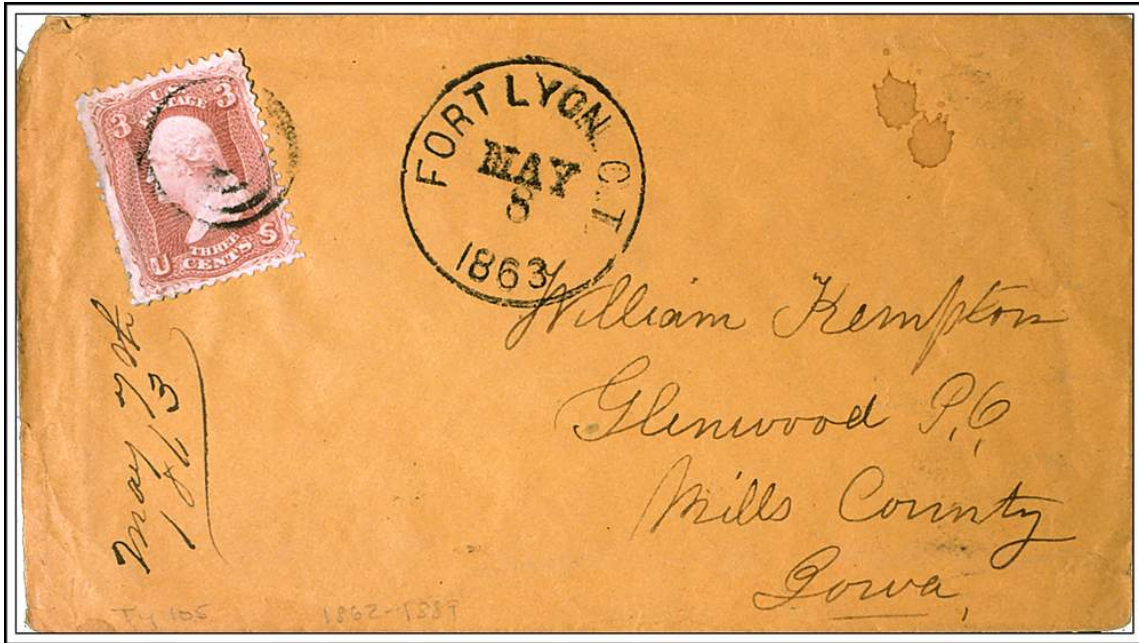 3 U.S. 3
POSTAGE
THREE
U CENTS S
FORT LYON. C.T.
MAY
8
1863
William Kempton
Glenwood P,O,
Mills County
Iowa,
May 7th
1863
Ty 105 1862-1889